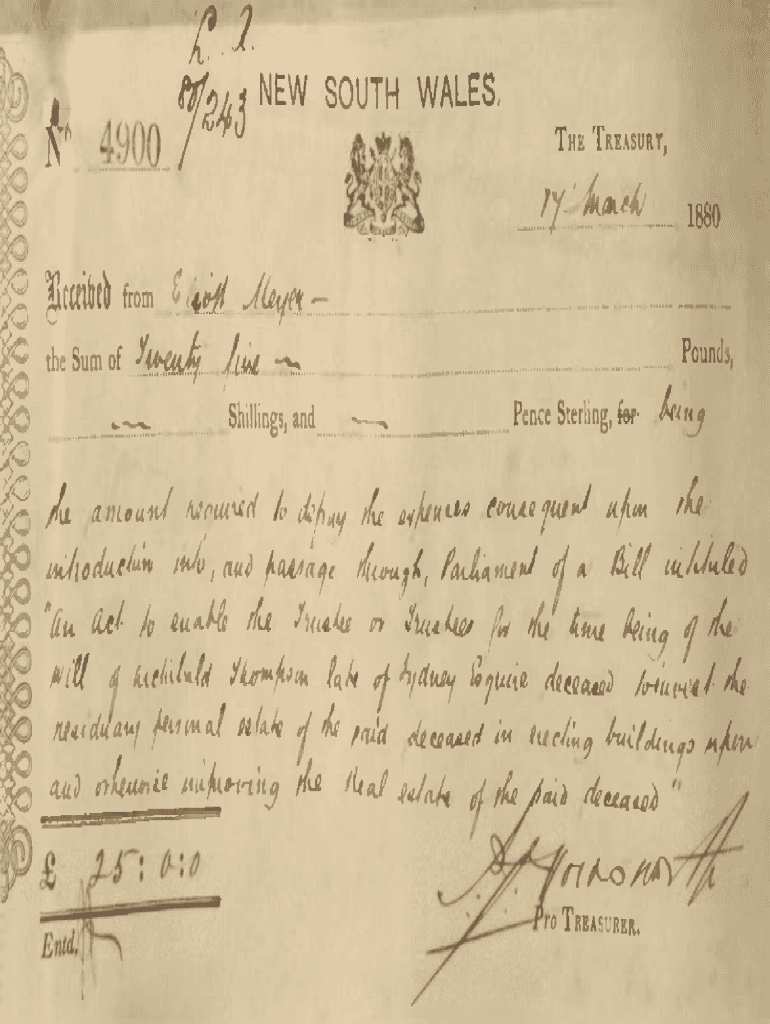 L. A.
80/243
NEW SOUTH WALES.
No 4900
THE TREASURY,
17 March 1880
Received from Meyer —
the Sum of Twenty five — Pounds,
— Shillings, and — Pence Sterling, for being
the amount required to defray the expenses consequent upon the
introduction into, and passage through, Parliament of a Bill intituled
"An Act to enable the Trustee or Trustees for the time being of the
will of Archibald Thompson late of Sydney Esquire deceased to invest the
residuary personal estate of the said deceased in erecting buildings upon
and otherwise improving the Real estate of the said deceased"
£ 25:0:0
PRO TREASURER.
Entd.